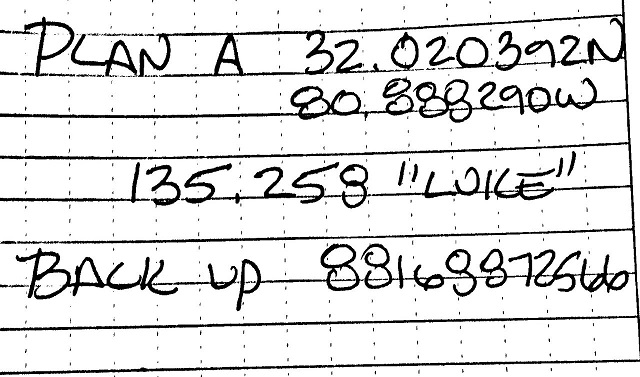 PLAN A 32.020392N
80.888290W
135.258 "LUKE"
BACK UP 88168872566